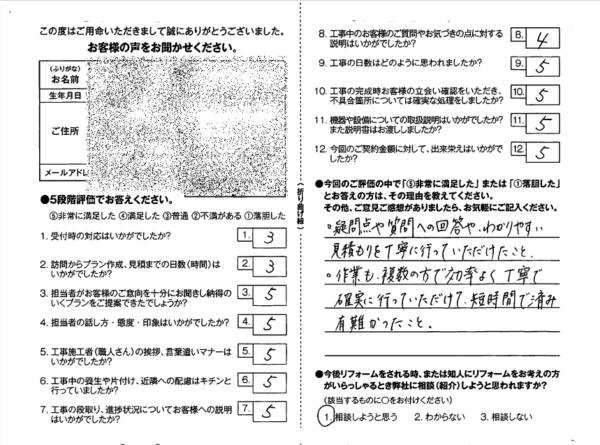 この度はご用命いただきまして誠にありがとうございました。
お客様の声をお聞かせください。
(ふりがな)
お名前
生年月日
ご住所
メールアドレス
●5段階評価でお答えください。
⑤非常に満足した ④満足した ③普通 ②不満がある ①落胆した
1. 受付時の対応はいかがでしたか?
1. 3
2. 訪問からプラン作成、見積までの日数(時間)は
いかがでしたか?
2. 3
3. 担当者がお客様のご意向を十分にお聞きし納得の
いくプランをご提案できたでしょうか?
3. 5
4. 担当者の話し方・態度・印象はいかがでしたか?
4. 5
5. 工事施工者(職人さん)の挨拶、言葉遣いマナーは
いかがでしたか?
5. 5
6. 工事中の養生や片付け、近隣への配慮はキチンと
行っていましたか?
6. 5
7. 工事の段取り、進捗状況についてお客様への説明
はいかがでしたか?
7. 5
(折り曲げ線)
8. 工事中のお客様のご質問やお気づきの点に対する
説明はいかがでしたか?
8. 4
9. 工事の日数はどのように思われましたか?
9. 5
10. 工事の完成時お客様の立会い確認をいただき、
不具合箇所については確実な処理をしましたか?
10. 5
11. 機器や設備についての取扱説明はいかがでしたか?
また説明書はお渡ししましたか?
11. 5
12. 今回のご契約金額に対して、出来栄えはいかがで
したか?
12. 5
●今回のご評価の中で「⑤非常に満足した」または「①落胆した」
とお答えの方は、その理由を教えてください。
その他、ご意見ご感想がありましたら、お気軽にご記入ください。
・疑問点や質問への回答や、わかりやすい
見積もりを丁寧に行っていただけたこと。
・作業も、複数の方で効率よく丁寧で
確実に行っていただけて、短時間で済み
有難かったこと。
●今後リフォームをされる時、または知人にリフォームをお考えの方
がいらっしゃるとき弊社に相談(紹介)しようと思われますか?
(該当するものに○をお付けください)
1. 相談しようと思う 2. わからない 3. 相談しない